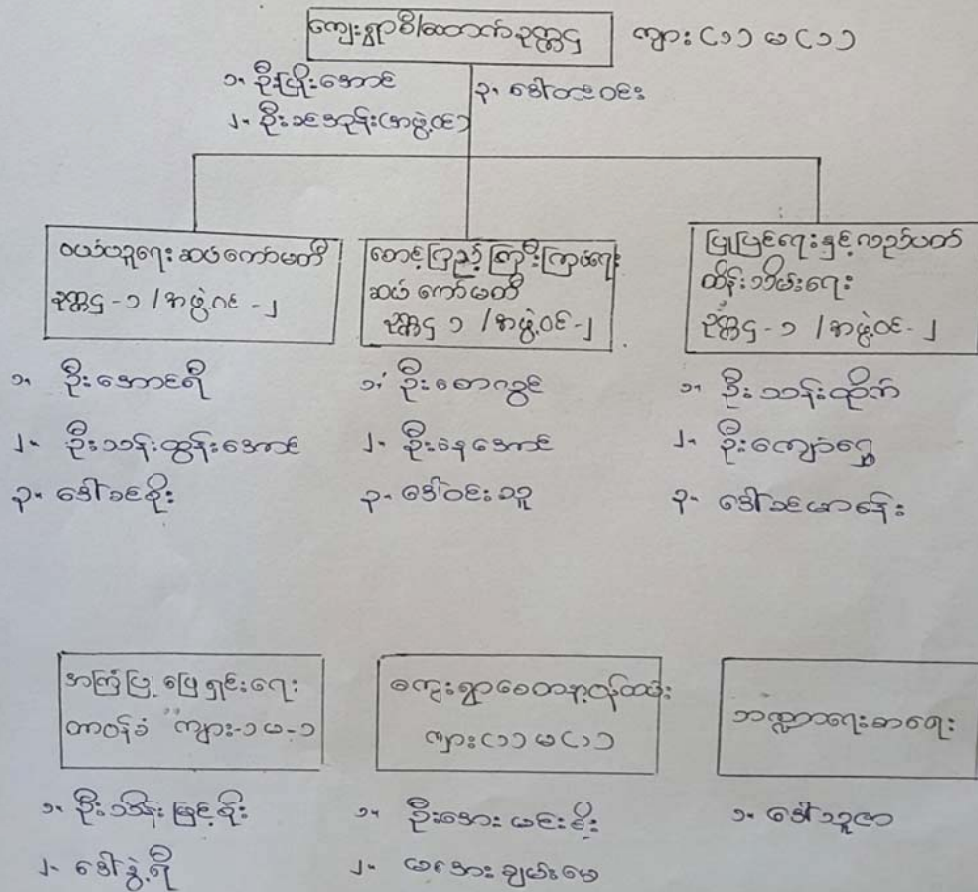 ကျေးရွာစီ/ထောက်ဥက္ကဌ ကျား (၁) မ (၁)
၁။ ဦးဖြိုးအောင်
၂။ ဦးခင်အုန်း(အဖွဲ့ဝင်)
၃။ ဒေါ်တူးဝင်း
ဝယ်ယူရေး ဆပ်ကော်မတီ
ဥက္ကဌ - ၁ / အဖွဲ့ဝင် - ၂
၁။ ဦးအောင်ရီ
၂။ ဦးသန်းထွန်းအောင်
၃။ ဒေါ်ခင်စိုး
စောင့်ကြည့်ကြီးကြပ်ရေး
ဆပ်ကော်မတီ
ဥက္ကဌ ၁ / အဖွဲ့ဝင် - ၂
၁။ ဦးစောလွင်
၂။ ဦးနေအောင်
၃။ ဒေါ်ဝင်းသူ
ပြုပြင်ရေးနှင့်လည်ပတ်
ထိန်းသိမ်းရေး
ဥက္ကဌ - ၁ / အဖွဲ့ဝင် - ၂
၁။ ဦးသန်းထိုက်
၂။ ဦးကျော်ရွှေ
၃။ ဒေါ်ခင်မာစန်း
အကြံပြု ဖြေရှင်းရေး
တာဝန်ခံ ကျား-၁ မ-၁
၁။ ဦးသိန်းမြင့်စိုး
၂။ ဒေါ်နွဲ့ရီ
ကျေးရွာစေတနာ့ဝန်ထမ်း
ကျား (၁) မ (၁)
၁။ ဦးအေးမင်းစိုး
၂။ မအေးချမ်းမေ
ဘဏ္ဍာရေးစာရေး
၁။ ဒေါ်သူဇာ